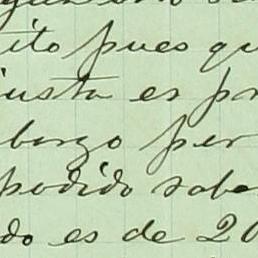 ito pues qu
justa es pr
bargo per
podido sabe
do es de 20